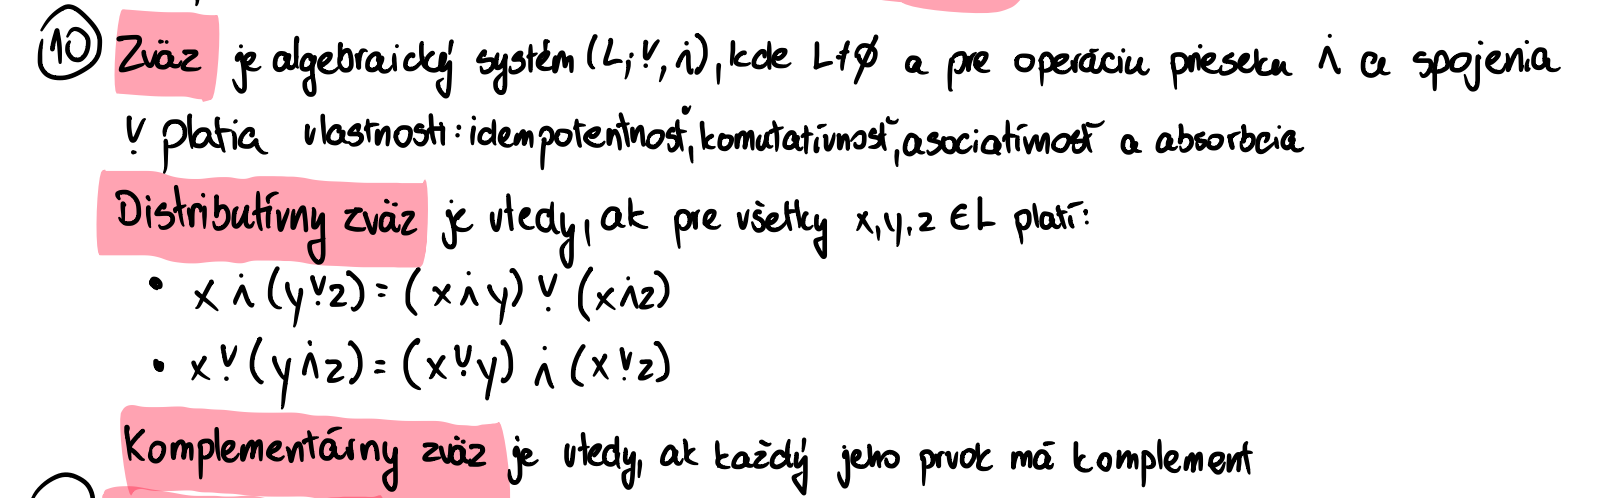 10 Zväz je algebraický systém (L; ⩒, ⩑), kde L ≠ ∅ a pre operáciu prieseku ⩑ a spojenia
⩒ platia vlastnosti: idempotentnosť, komutatívnosť, asociatívnosť a absorbcia
Distributívny zväz je vtedy, ak pre všetky x, y, z ∈ L platí:
• x ⩑ (y ⩒ z) = (x ⩑ y) ⩒ (x ⩑ z)
• x ⩒ (y ⩑ z) = (x ⩒ y) ⩑ (x ⩒ z)
Komplementárny zväz je vtedy, ak každý jeho prvok má komplement